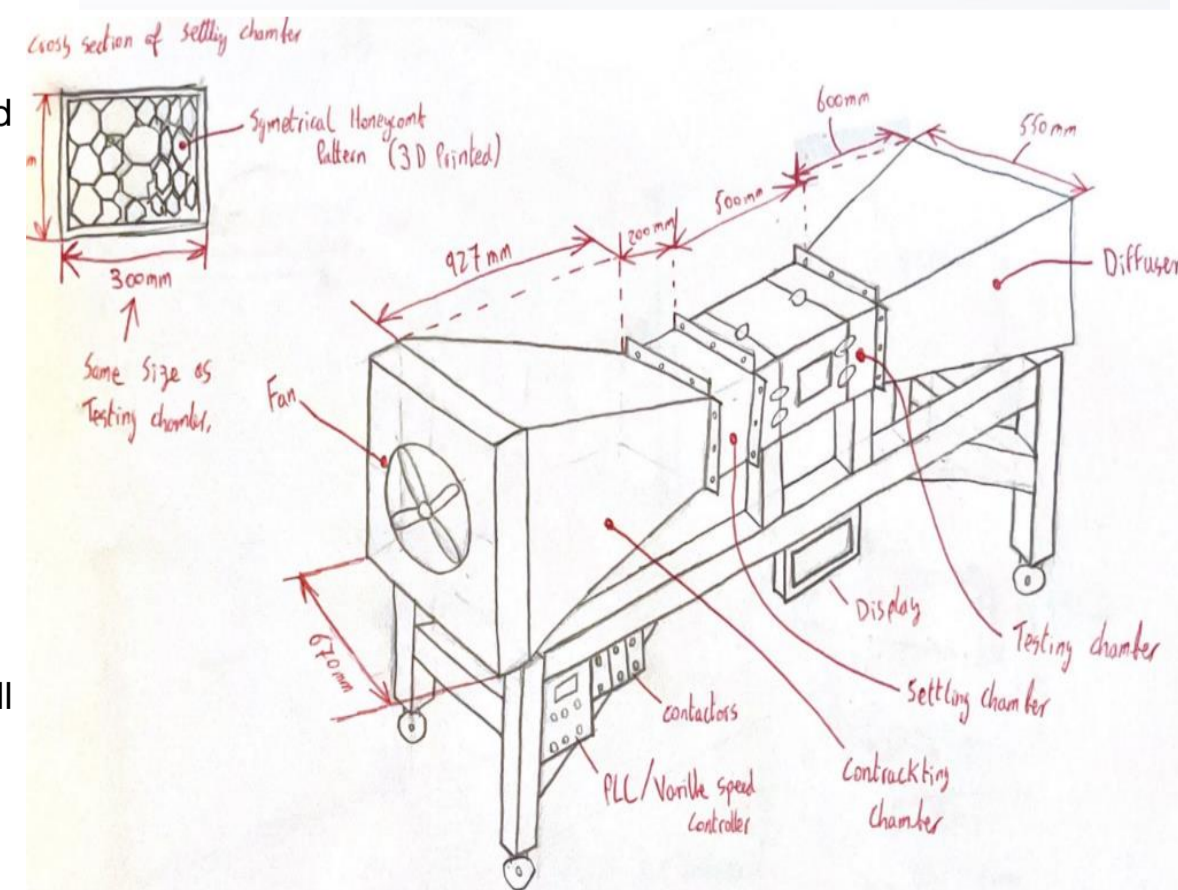 Cross section of settling chamber
d
m
Symetrical Honeycomb
Pattern (3D Printed)
300mm
Same Size as
Testing chamber.
600mm
550mm
500mm
200mm
927mm
Diffuser
Fan
670mm
Display
Testing chamber
Settling chamber
contactors
Contrackting
Chamber
PLC/Varible speed
Controller
ll